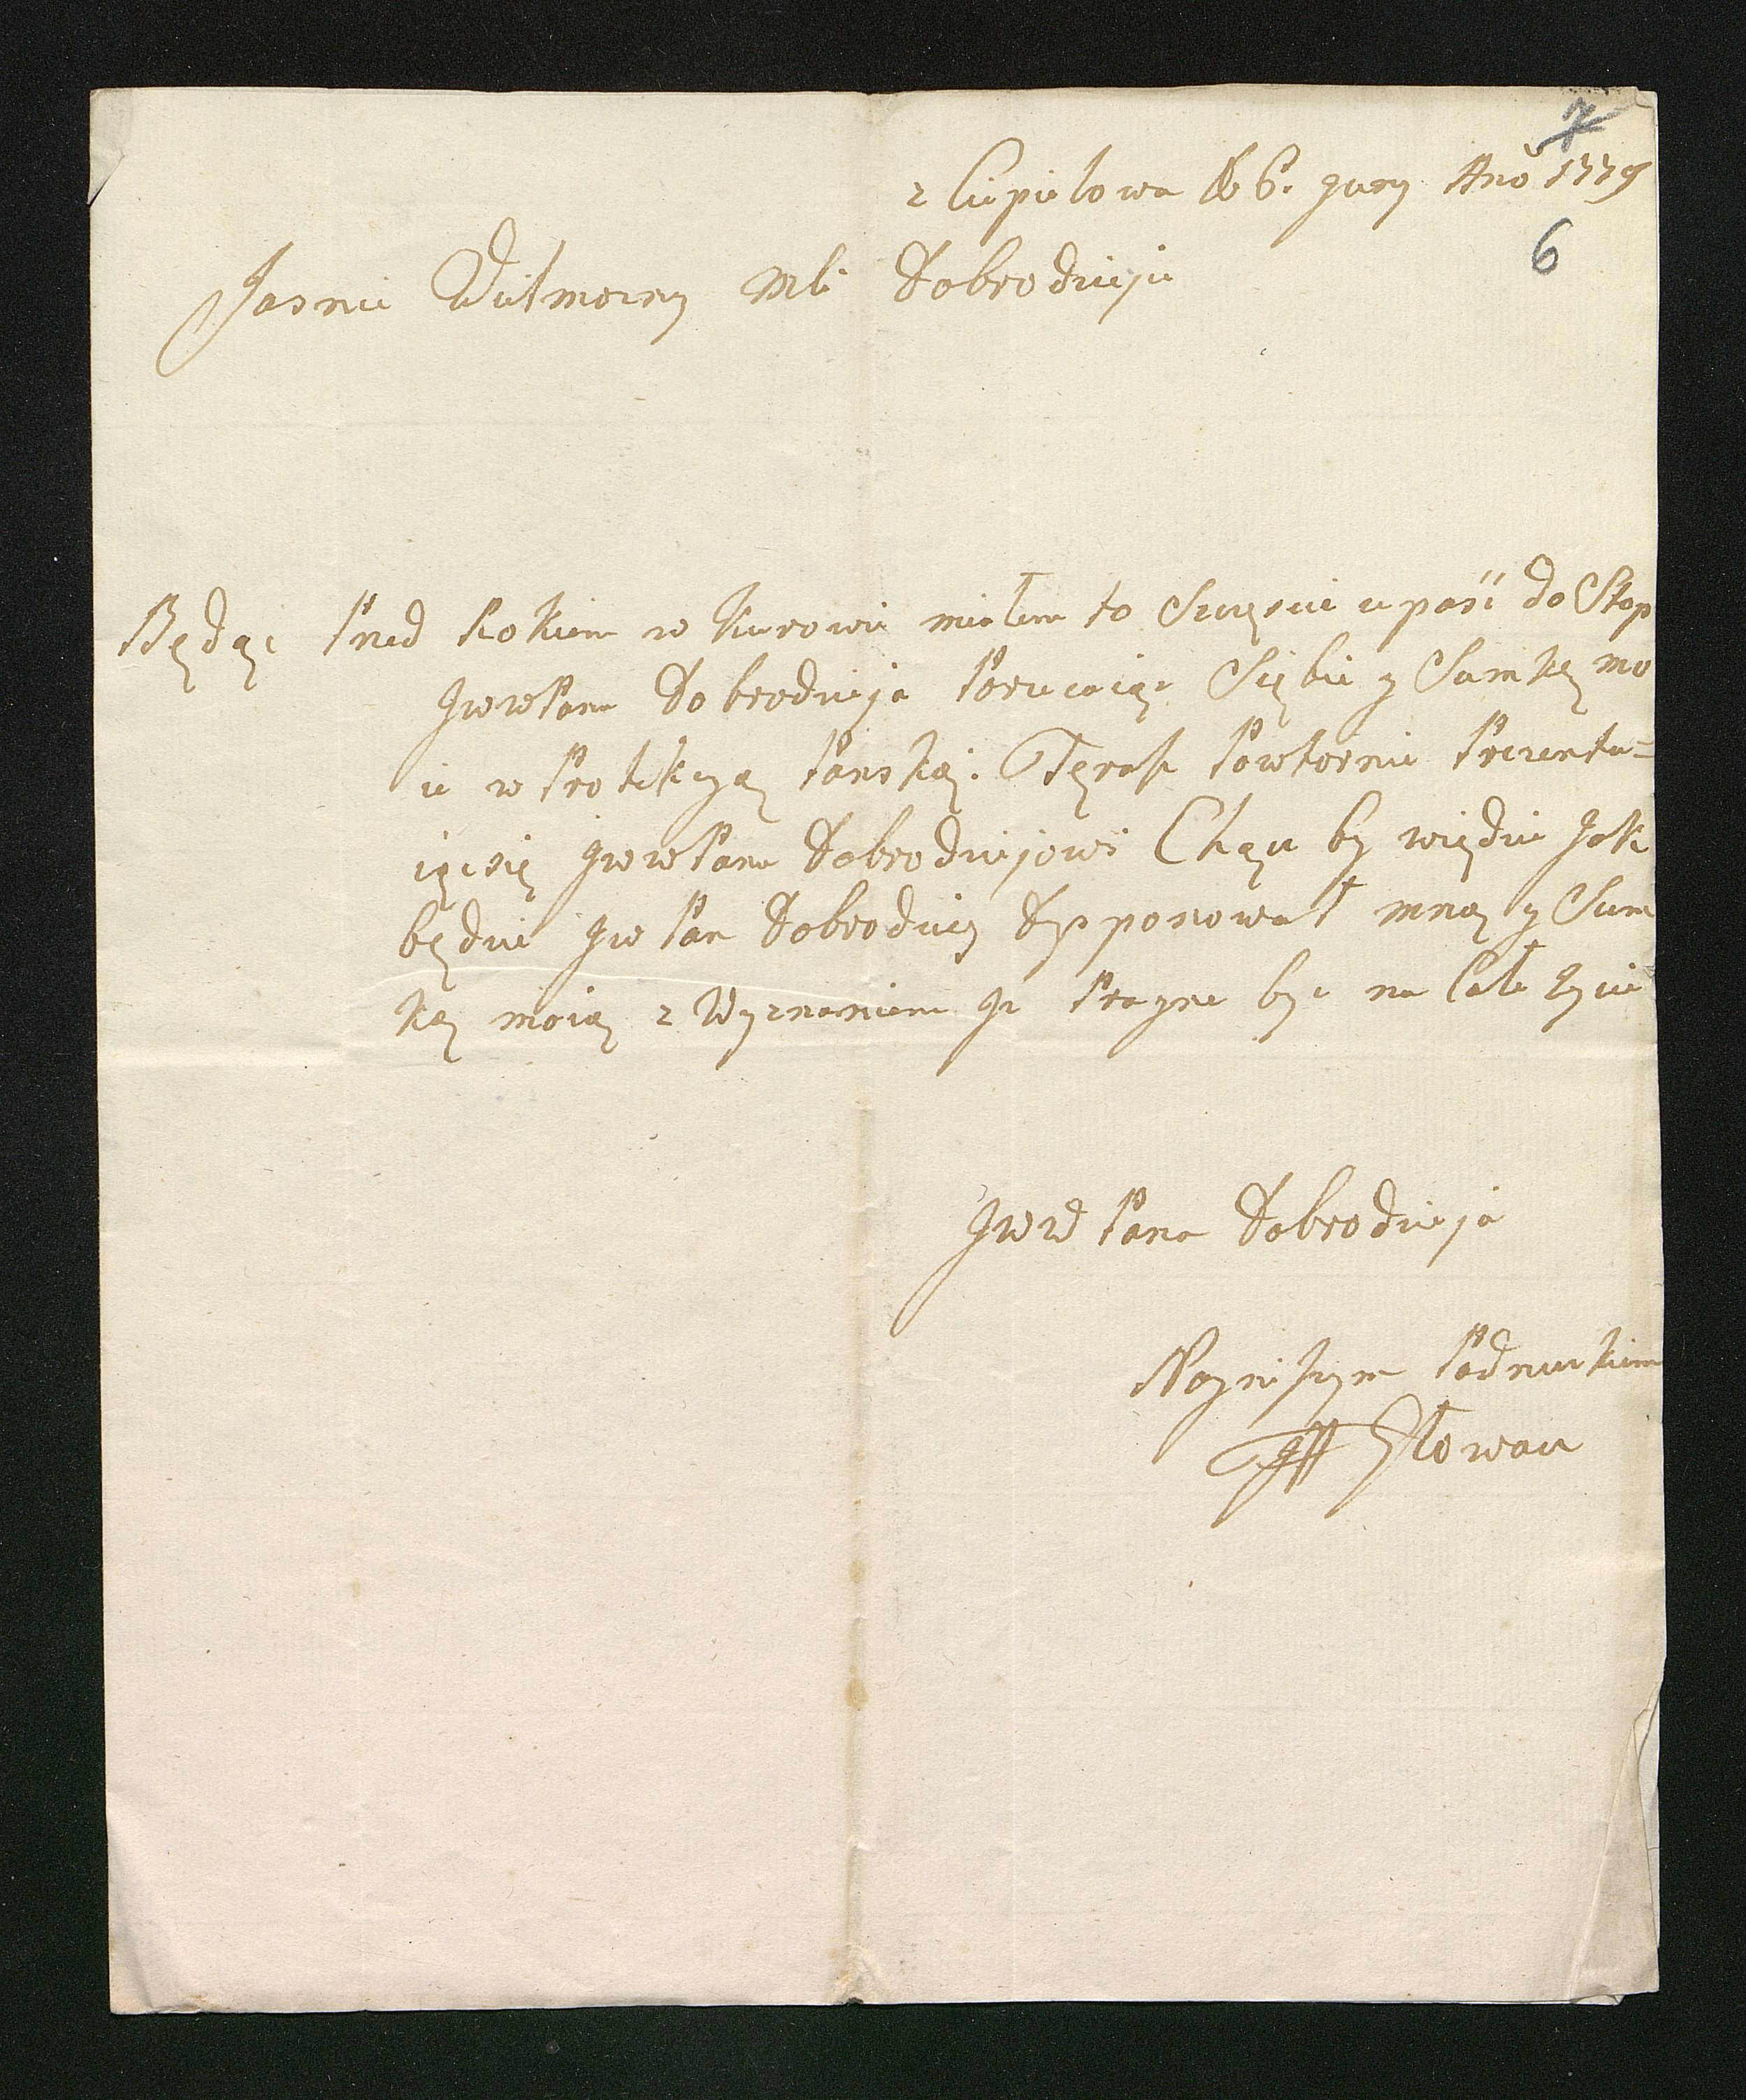 7
z Ciepielowa d 6. Ano 1779
6
Jasnie Wielmozny Mći Dobrodzieju
Będąc Przed Rokiem w Kurowie miałem to Szczęscie upaść do Stop
JwwPana Dobrodzieja Porucaiąc Siębie y Sumkę mo
ie w Protekcyą Panską. Tęrasz Powtornie Prezentu=
iąc się JwwPanu Dobrodziejowi Chąc by więdzie Jak
będzie Jw Pan Dobrodziey Dysponował mną y Sum
ką moią z Wyznaniem Jz Pragne byc na Całe Zycie
Jww Pana Dobrodzieja
Nayniszym Podnuzkiem